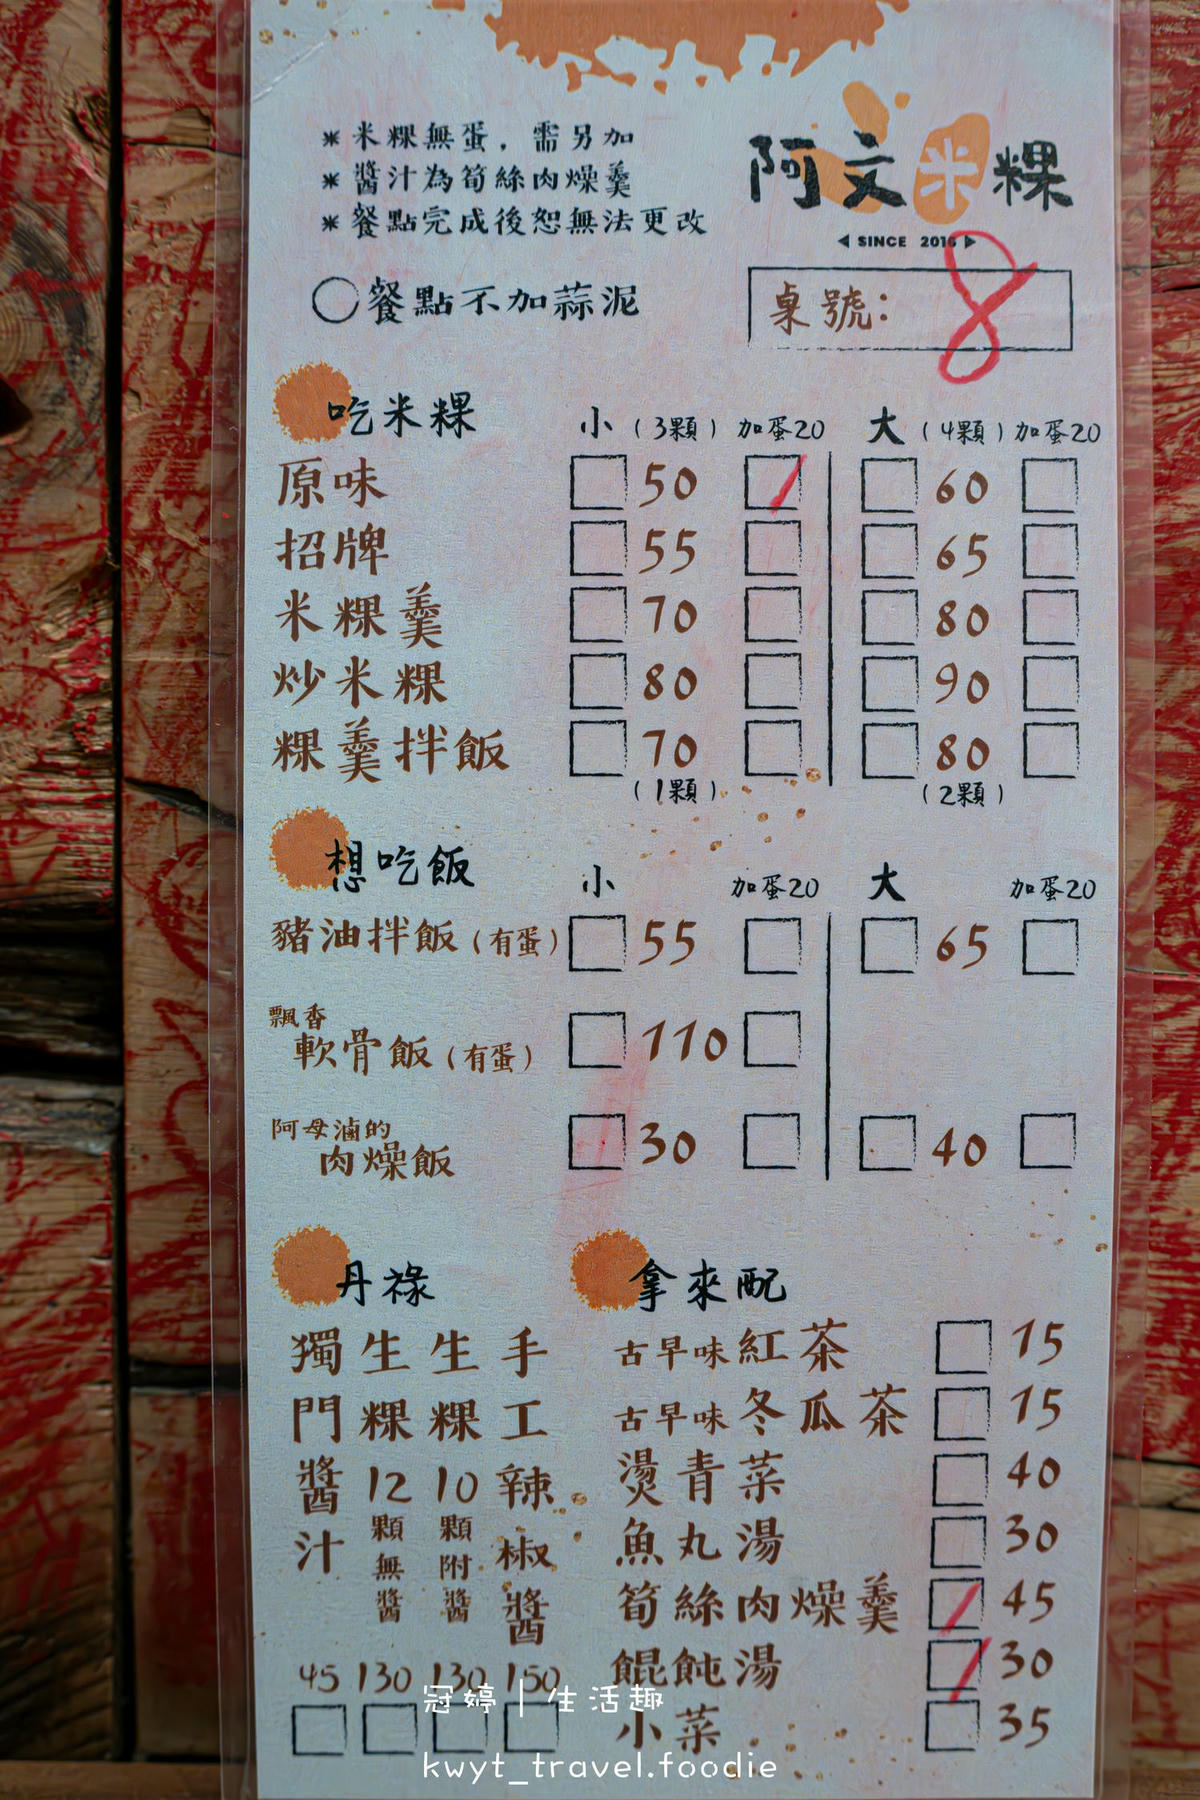 ＊米粿無蛋，需另加
＊醬汁為筍絲肉燥羹
＊餐點完成後恕無法更改
阿文米粿
SINCE 2016
○餐點不加蒜泥
桌號： 8
吃米粿 小（3顆）加蛋20 大（4顆）加蛋20
原味 50 60
招牌 55 65
米粿羹 70 80
炒米粿 80 90
粿羹拌飯 70 80
（1顆） （2顆）
想吃飯 小 加蛋20 大 加蛋20
豬油拌飯（有蛋） 55 65
飄香
軟骨飯（有蛋） 110
阿母滷的
肉燥飯 30 40
丹祿
獨門醬汁 45
生粿12顆無醬 130
生粿10顆附醬 130
手工辣椒醬 150
拿來配
古早味紅茶 15
古早味冬瓜茶 15
燙青菜 40
魚丸湯 30
筍絲肉燥羹 45
餛飩湯 30
小菜 35
冠婷｜生活趣
kwyt_travel.foodie